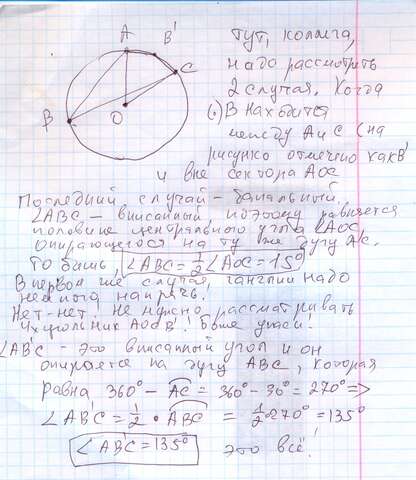 A
B'
C
B
O
Тут, коллега,
надо рассмотреть
2 случая. Когда
(·) В находится
между А и С (на
рисунке отмечно как В'
и вне сектора АОС
Последний случай - банальный.
∠ABC - вписанный, поэтому равняется
половине центрального угла ∠AOC,
опирающегося на ту же дугу AC.
То бишь, ∠ABC = 1/2 ∠AOC = 15°
В первом же случае, ганглии надо
немного напрячь.
Нет-нет. Не нужно рассматривать
ч-хугольник AOCB'! Боже упаси!
∠AB'C - это вписанный угол и он
опирается на дугу ABC, которая
равна 360° - AC = 360° - 30° = 270° =>
∠AB'C = 1/2 · ABC = 1/2·270° = 135°
∠AB'C = 135° это все!